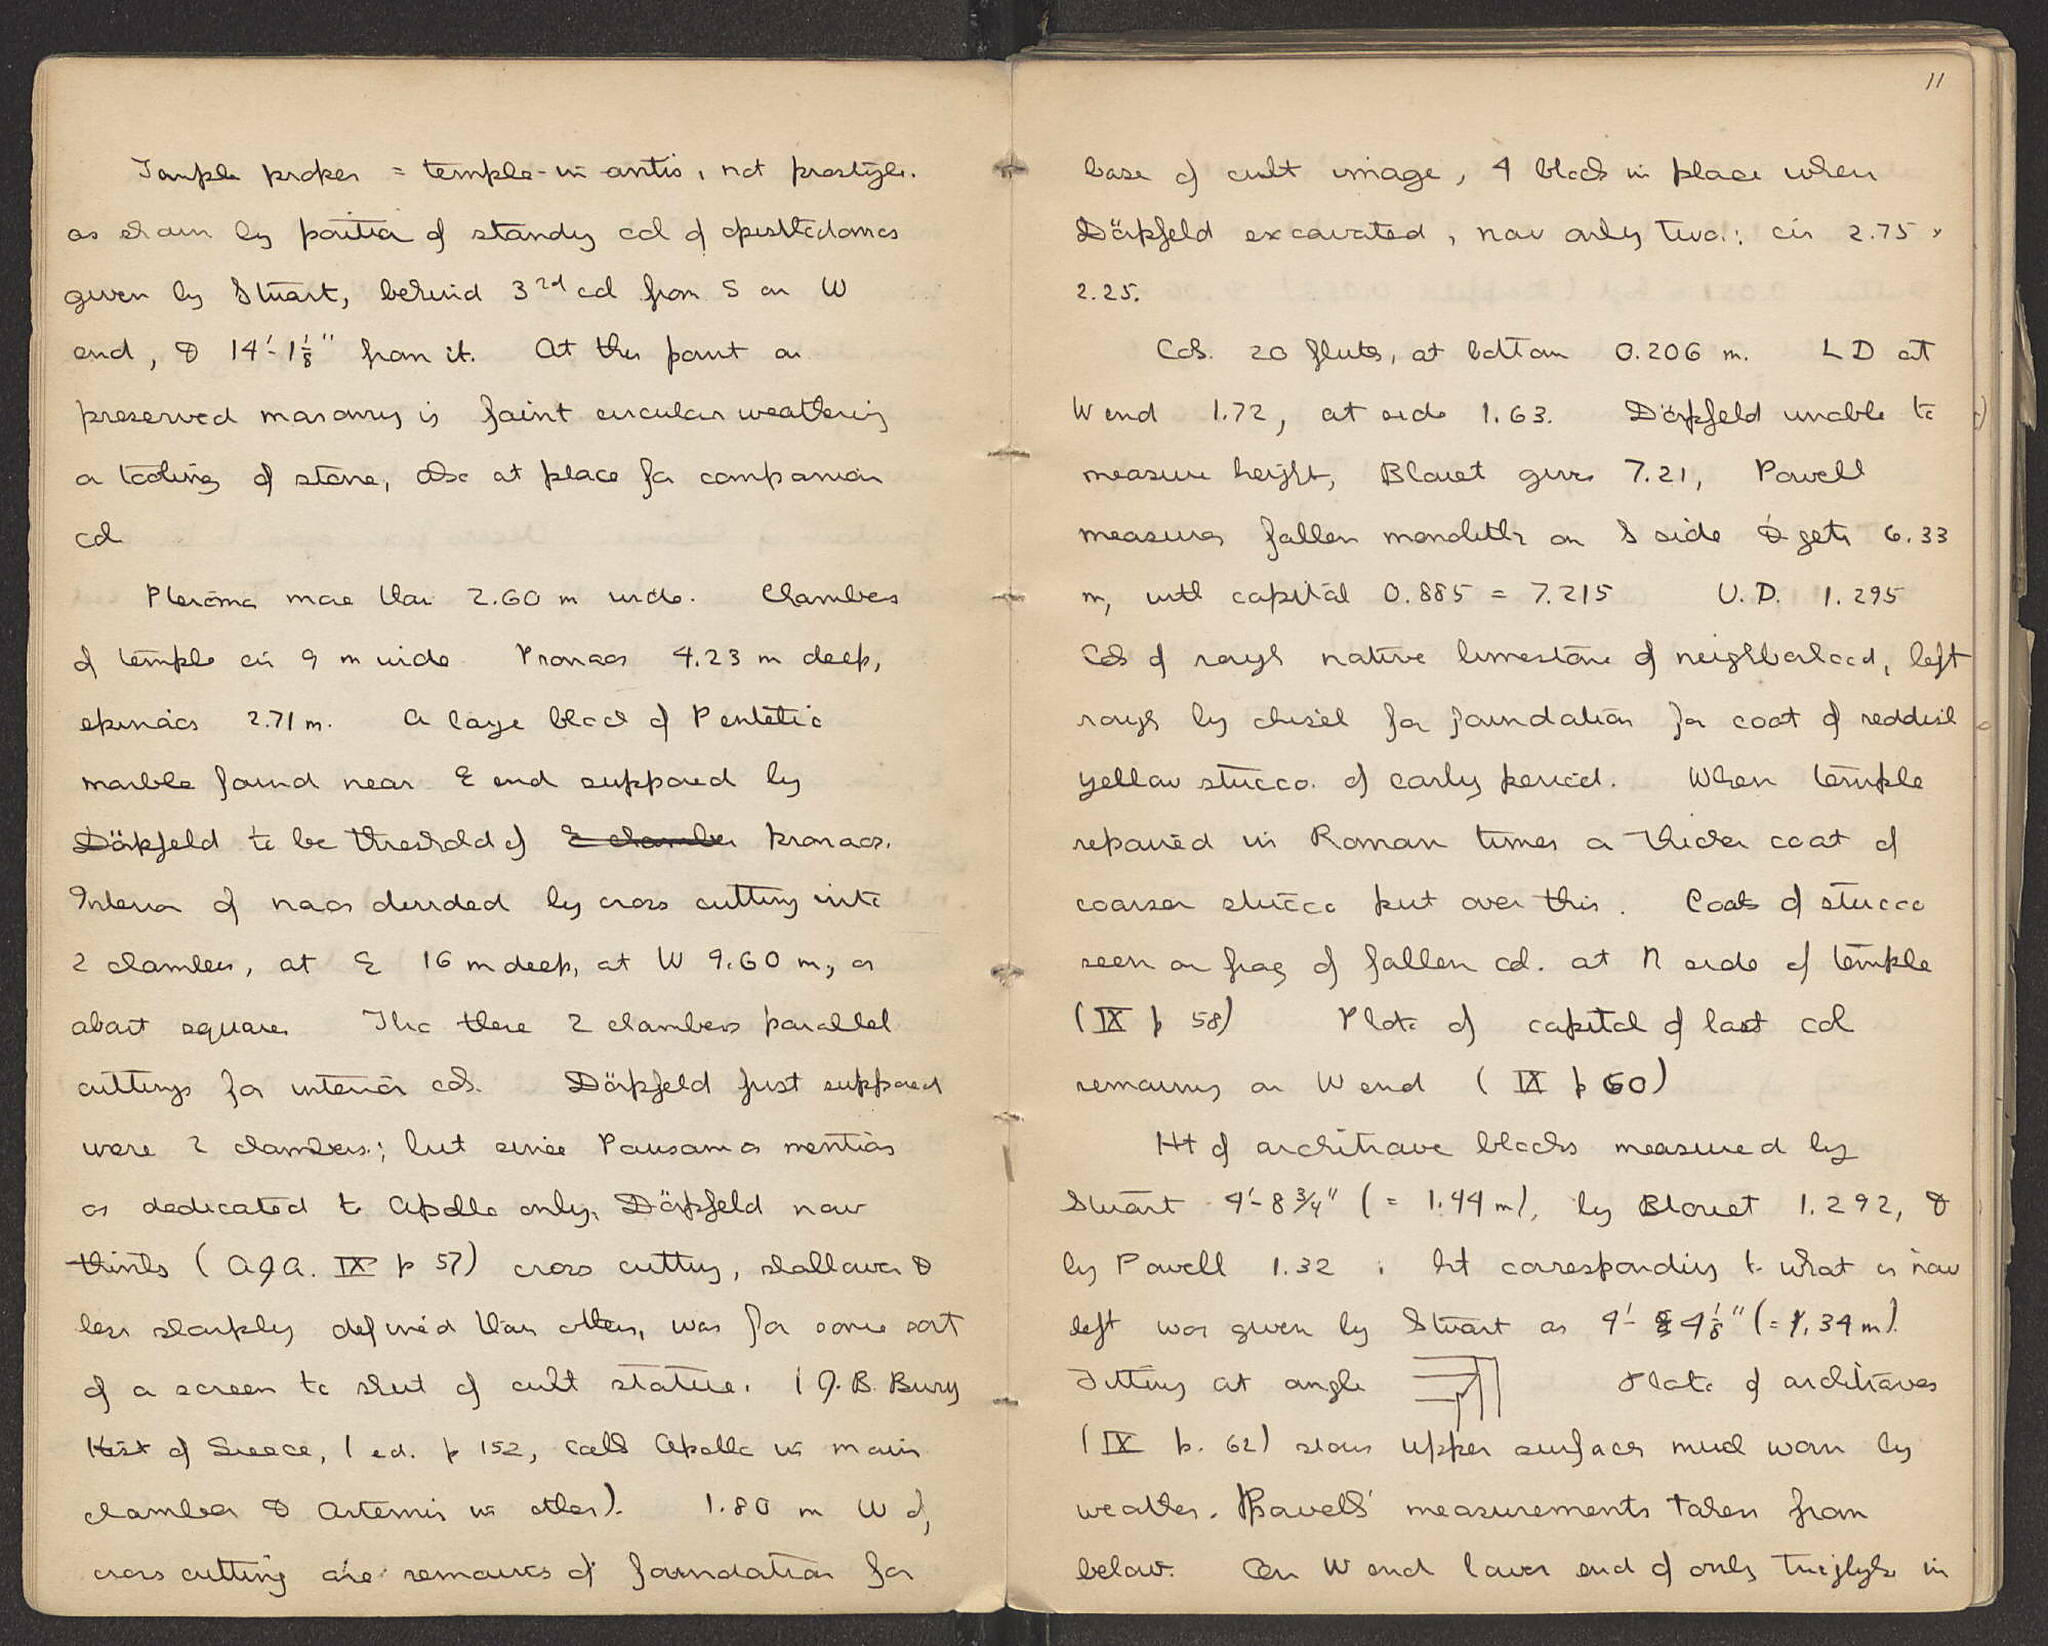 Temple proper = temple-in-antis, not prostyle.
as shown by position of standing col of opisthodomos
given by Stuart, behind 3rd col from S on W
end, & 14'-1 1/8" from it. At this point on
preserved masonry is faint circular weathering
or tooling of stone, also at place for companion
col
Pteroma more than 2.60 m wide. Chambers
of temple cir 9 m wide Pronaos 4.23 m deep,
epinaos 2.71 m. A large block of Pentelic
marble found near E end supposed by
Dörpfeld to be threshold of E chamber pronaos.
Interior of naos divided by cross cutting into
2 chambers, at E 16 m deep, at W 9.60 m, or
about square Thro these 2 chambers parallel
cuttings for interior cols. Dörpfeld first supposed
were 2 chambers; but since Pausanias mentions
as dedicated to Apollo only, Dörpfeld now
thinks (AJA. IX p 57) cross cutting, shallower &
less sharply defined than others, was for some sort
of a screen to shut of cult statue. (J.B. Bury
Hist of Greece, 1 ed. p 152, calls Apollo in main
chamber & Artemis in other). 1.80 m W of,
cross cutting are remains of foundation for
11
base of cult image, 4 blocks in place when
Dörpfeld excavated, now only two: cir 2.75 x
2.25.
Cols. 20 flutes, at bottom 0.206 m. LD at
W end 1.72, at side 1.63. Dörpfeld unable to
measure height, Blouet gives 7.21, Powell
measures fallen monolith on S side & gets 6.33
m, with capital 0.885 = 7.215 U.D. 1.295
Cols of rough native limestone of neighborhood, left
rough by chisel for foundation for coat of reddish
yellow stucco of early period. When temple
repaired in Roman times a thicker coat of
coarser stucco put over this. Coats of stucco
seen on frag of fallen col. at N side of temple
(IX p 58) Plate of capital of last col
remaining on W end (IX p 60)
Ht of architrave blocks measured by
Stuart 4'-8 3/4" (= 1.44 m), by Blouet 1.292, &
by Powell 1.32; ht corresponding to what is now
left was given by Stuart as 4'- 4 1/8" (= 1.34 m).
Jutting at angle Plate of architraves
(IX p. 62) shows upper surfaces much worn by
weather. Powell's measurements taken from
below. On W end lower end of only triglyph in